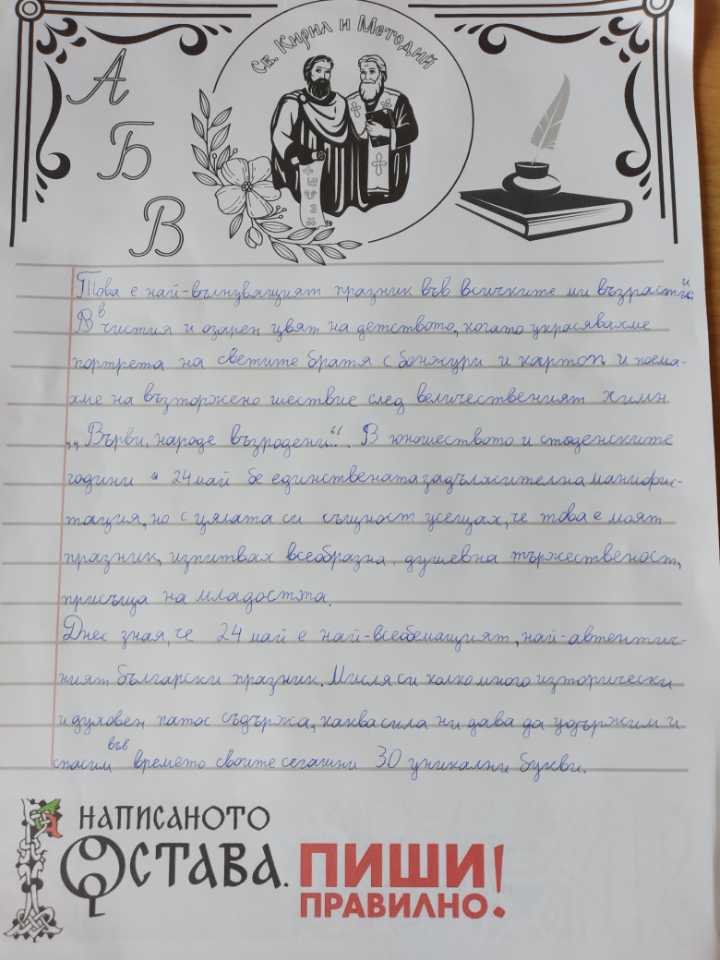 Св. Кирил и Методий
А
Б
В
Това е най-вълнуващият празник във всичките ми възрасти.
В чистия и озарен цвят на детството, когато украсявахме
портрета на светите братя с божури и картон и поема-
хме на възторжено шествие след величественият химн
„Върви, народе възродени!“. В юношеството и стоденските
години 24 май бе единствената задължителна манифес-
тация, но с цялата си същност усещах, че това е моят
празник, изпитвах всеобразна, душевна тържественост,
присъща на младостта.
Днес зная, че 24 май е най-всеобемащият, най-автентич-
ният български празник. Мисля си колко много изторически
и духовен патос съдържа, каква сила ни дава да удържим и
спасим във времето своите сегашни 30 уникални букви.
НАПИСАНОТО
ОСТАВА. ПИШИ
ПРАВИЛНО!